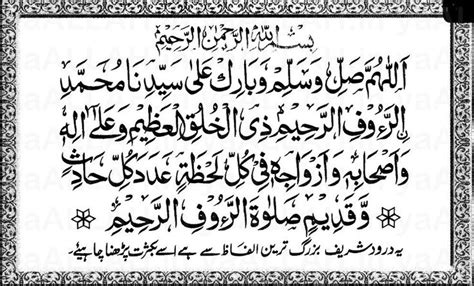 بِسْمِ اللهِ الرَّحْمٰنِ الرَّحِيْمِ
اَللّٰهُمَّ صَلِّ وَسَلِّمْ وَبَارِكْ عَلٰى سَيِّدِنَا مُحَمَّدِ
الرَّءُوْفِ الرَّحِيْمِ ذِى الْخُلُقِ الْعَظِيْمِ وَعَلٰٓى اٰلِهٖ
وَاَصْحَابِهٖ وَاَزْوَاجِهٖ فِىْ كُلِّ لَحْظَةٍ عَدَدَ كُلِّ حَادِثٍ
وَّقَدِيْمٍ صَلٰوةَ الرَّءُوْفِ الرَّحِيْمِ
یہ درود شریف بزرگ ترین الفاظ سے ہے اسے بکثرت پڑھنا چاہیئے